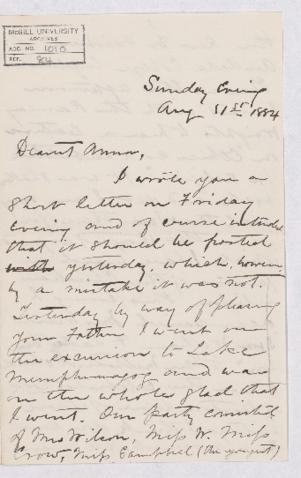 McGILL UNIVERSITY
ARCHIVES
ACC. NO. 1010
REF. 84
Sunday Evening
Aug 31st 1884
Dearest Anna,
I wrote you a
short letter on Friday
Evening and of course intended
that it should be posted
yesterday, which, however
by a mistake it was not.
Yesterday by way of pleasing
your Father I went on
the excursion to Lake
Memphremagog and was
on the whole glad that
I went. Our party consisted
of Mrs Wilson, Miss W. Miss
Crow, Miss Campbel (the youngest)